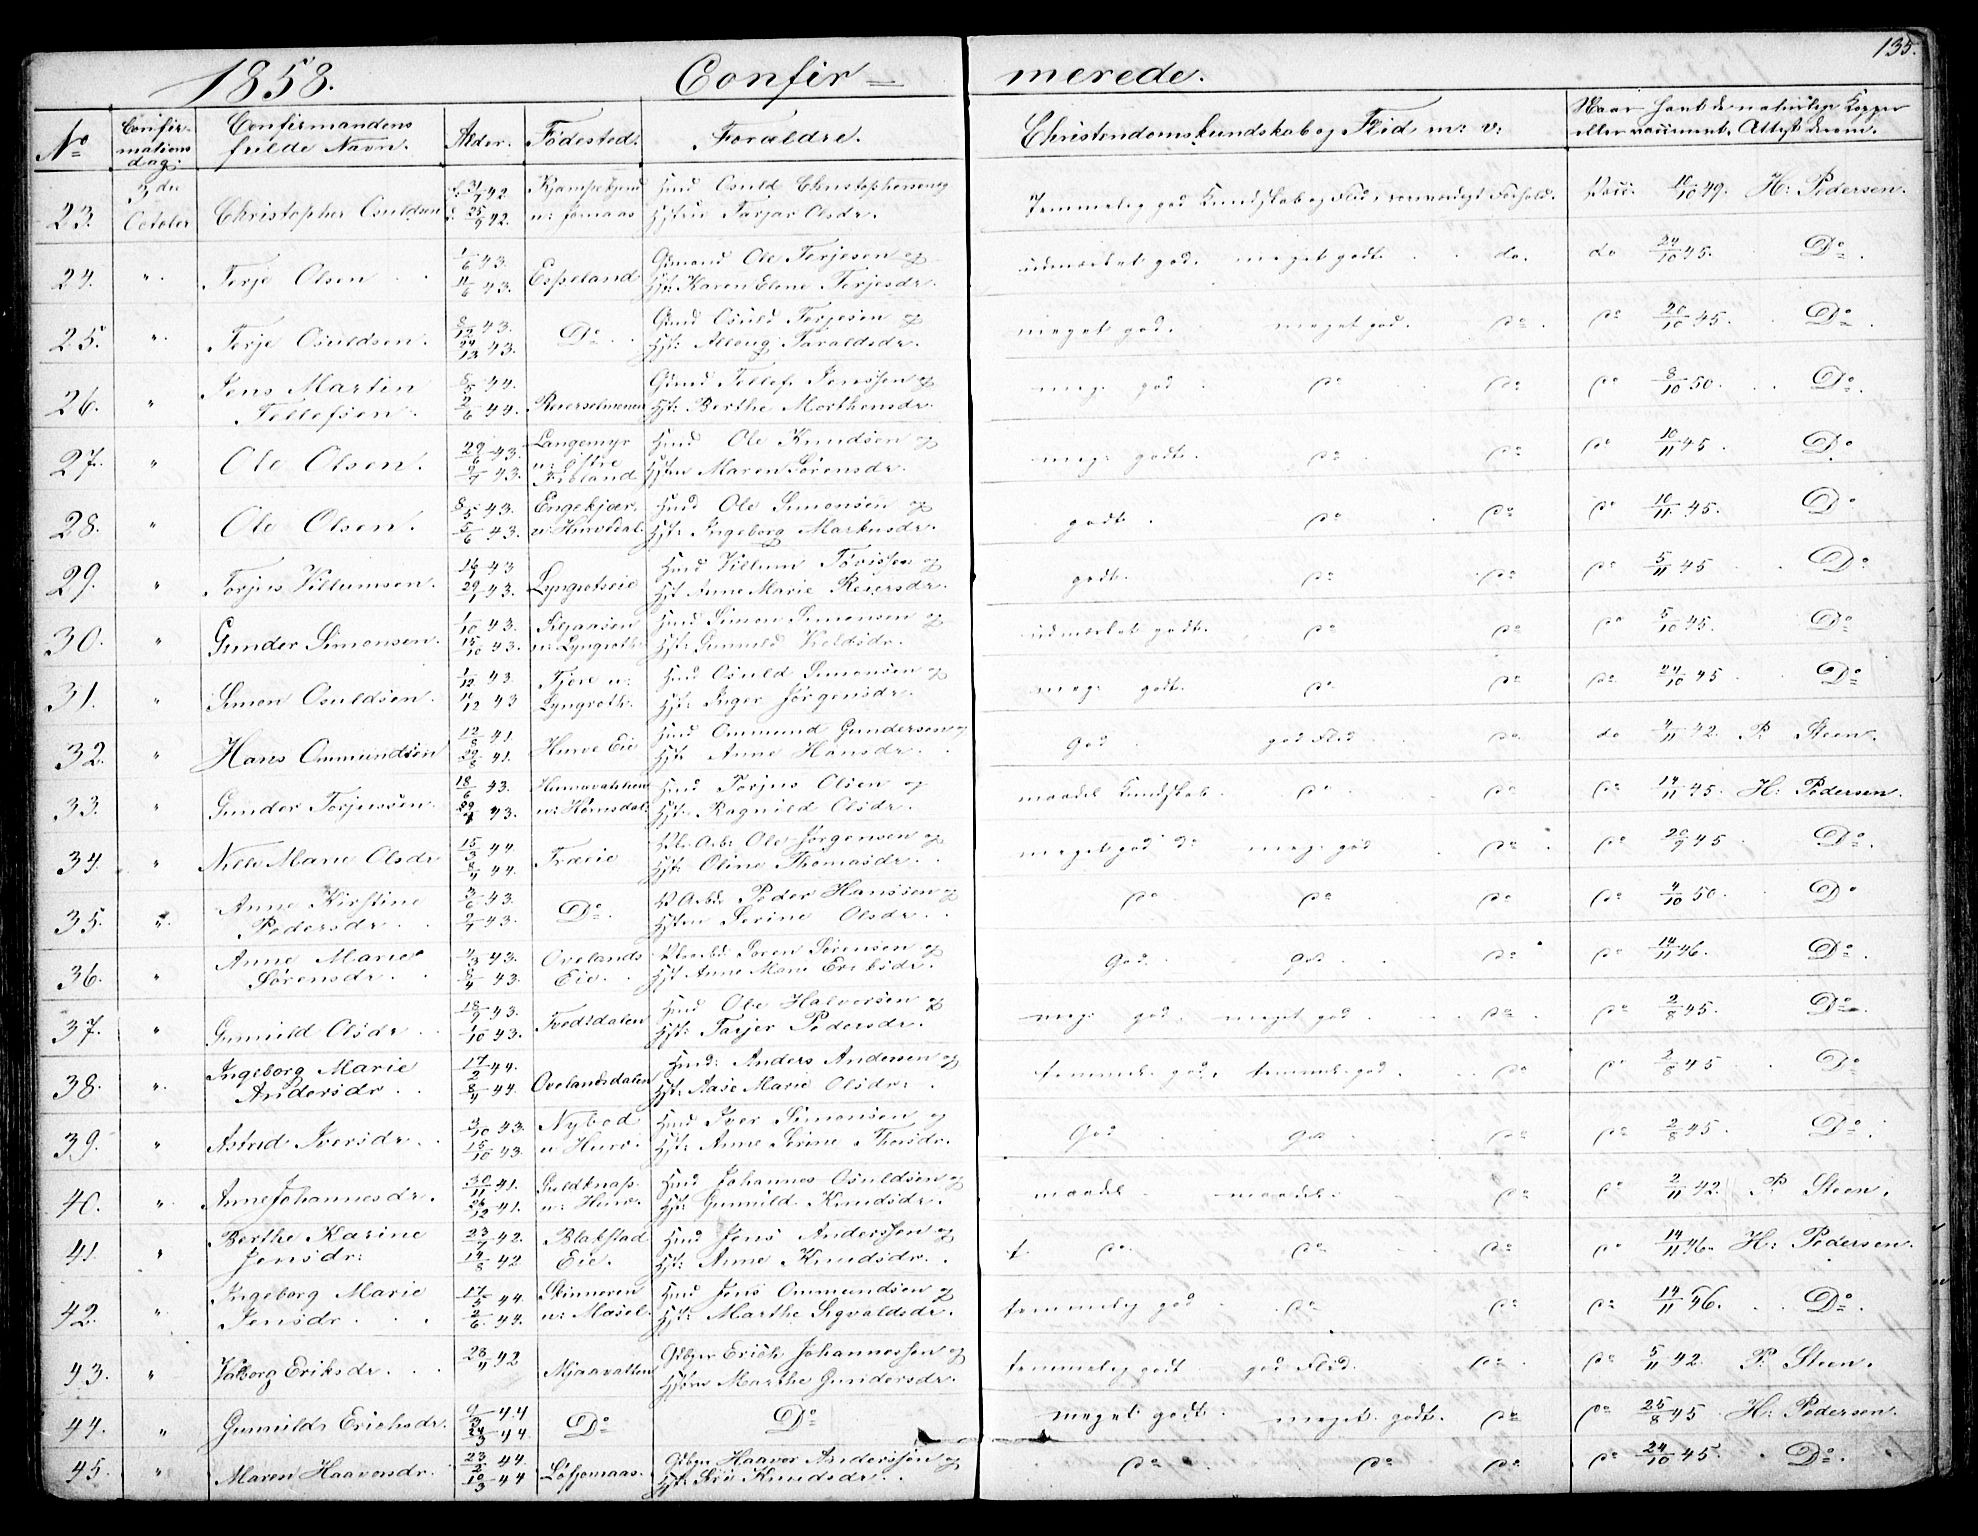 135.
1858. Confir= merede.
No Confirmationsdag: Confirmandens fulde Navn. Alder. Fødested. Forældre. Christendomskundskab og Flid m: v: Naar havt de naturlige Kopper eller vaccineret. Attest derom.
23. 3die October Christopher Osuldsen Huusd Osuld Christophersen og Hustrue Tarjer Olsdr. Temmelig god Kundskab og Flid, Forhold. Vacc: 10/10 49. H: Pedersen.
24. " Terje Olsen 1/6 43. 11/6 43. Espeland Gdmand Ole Terjesen og Hst: Karen Elene Terjesdr. udmærket god. meget godt. do. do 24/10 45. Do
25. " Terje Osuldsen. 8/12 43. Do Gdmd Osuld Terjesen og Hst: Alloug Taraldsdr. meget god. meget god. Do Do 20/10 45. Do
26. " Jens Martin Tellefsen. 8/5 44. 2/6 44. Reierselmoen Gdmd Tellef Jenssen og Hst: Berthe Morthensdr. meg: god Do Do Do 8/10 50. Do
27. " Ole Olsen. 29/6 43. 9/7 43. Langemyr u: Østre Fidland Hmd Ole Knudsen og Hstru Maren Sørensdr. meg: godt. Do Do Do 10/11 45. Do
28. " Ole Olsen. 8/5 43. 5/6 43. Engekjær u: Hurvedal Husd Ole Simonsen og Hst: Ingeborg Markusdr. godt. Do Do Do 10/11 45. Do
29. " Torjus Villumsen. 14/1 43 29/1 43. Lyngrotseie Husd Villum Tørissen og Hst Anne Marie Reiersdr. godt. Do Do Do 5/11 45 Do
30. " Gunder Simonsen. 1/10 43. 15/10 43. u: Lyngroth Husd Simon Simonsen og Hst: Gunnild Keldsdr. udmærket godt. Do Do Do 5/10 45. Do
31. " Simon Osuldsen. 1/12 43. 11/12 43 Tjere u: Lyngroth. Husd Osuld Simonsen og Hst: Inger Jørgensdr. meg: godt. Do Do Do 24/10 45 Do
32. " Hans Ommundsen 12/8 41. 22/8 41. Hurve Eie Husd Ommund Gundersen og Hst: Anne Hansdr. God god Flid Do do 4/11 42. P. Steen.
33. " Gunder Torjussen. 18/6 43. u: Hømsdal. Husd Torjus Olsen og Hst: Ragnild Olsdr. maadel Kundskab. Do Do Do 14/11 45. H: Pedersen.
34. " Nille Marie Olsdr 15/3 44. 8/4 44. Træeie Ole Jørgensen og Hst: Oline Thomasdr. meget god Do meg: god Do Do 20/9 45 Do
35. " Anne Kirstine Pedersdr. 3/6 43. 2/7 43. Do Peder Hanssen og Hstru Serine Olsdr. Do Do Do Do 4/10 50. Do
36. " Anne Marie Sørensdr. 4/3 43. 8/4 43. Ovelands Eie. Søren Sørensen og Hst. Anne Marie Eriksdr. God. God Do Do 14/11 46. Do
37. " Gunnild Olsdr. 18/9 43. 1/10 43. Tvedsdalen Husd Ole Halvorsen og Hst: Tarjer Pedersdr. meg: god. meget god. Do Do 2/8 45. Do
38. " Ingeborg Marie Andersdr 17/2 44. 8/4 44. Ovelandsdalen Husd: Anders Andersen og Hst: Aase Marie Olsdr. temmel: god, temmel: god. Do Do 2/8 45 Do
39. " Astrid Iversdr. 15/10 43. Nybod u Hurv. Husd Iver Simonsen og Hst: Anne Serine Thorsdr. God God Do Do 2/8 45. Do
40. " Anne Johannesdr. 30/11 41. 26/12 41. Guldknap. u: Hurv. Husd Johannes Osuldsen og Hst: Gunnild Knudsdr. maadel maadel. Do Do 2/11 42. P. Steen.
41. " Berthe Karine Jensdr: 23/7 42. 14/8 42 Blakstad Eie. Husd Jens Anderssen og Hst: Anne Knudsdr. t. Do. Do Do Do 14/11 46. H: Pedersen.
42. " Ingeborg Marie Jensdr. 17/5 44. 2/6 44. Skinneren u: Masel. Husd Jens Ommundsen og Hst: Marthe Sigvaldsdr. temmelig god Do Do Do 14/11 46. Do
43. " Valborg Eriksdr. 28/11 42 Mjaavatten Gdbgr Erich Johannessen og Hstru Marthe Gundersdr. temmelig godt god Flid. Do Do 5/11 42. P. Steen.
44. " Gunnild Erichsdr. 9/3 44 24/3 44. Do Do meget godt. meget godt. Do Do 25/8 45 H: Pedersen.
45. " Maren Haavorsdr. 23/2 44. 10/3 44 Løfjomaas. Gdbgr Haavor Anderssen og Hst: Siri Knudsdr. Do Do Do Do 24/10 45. Do